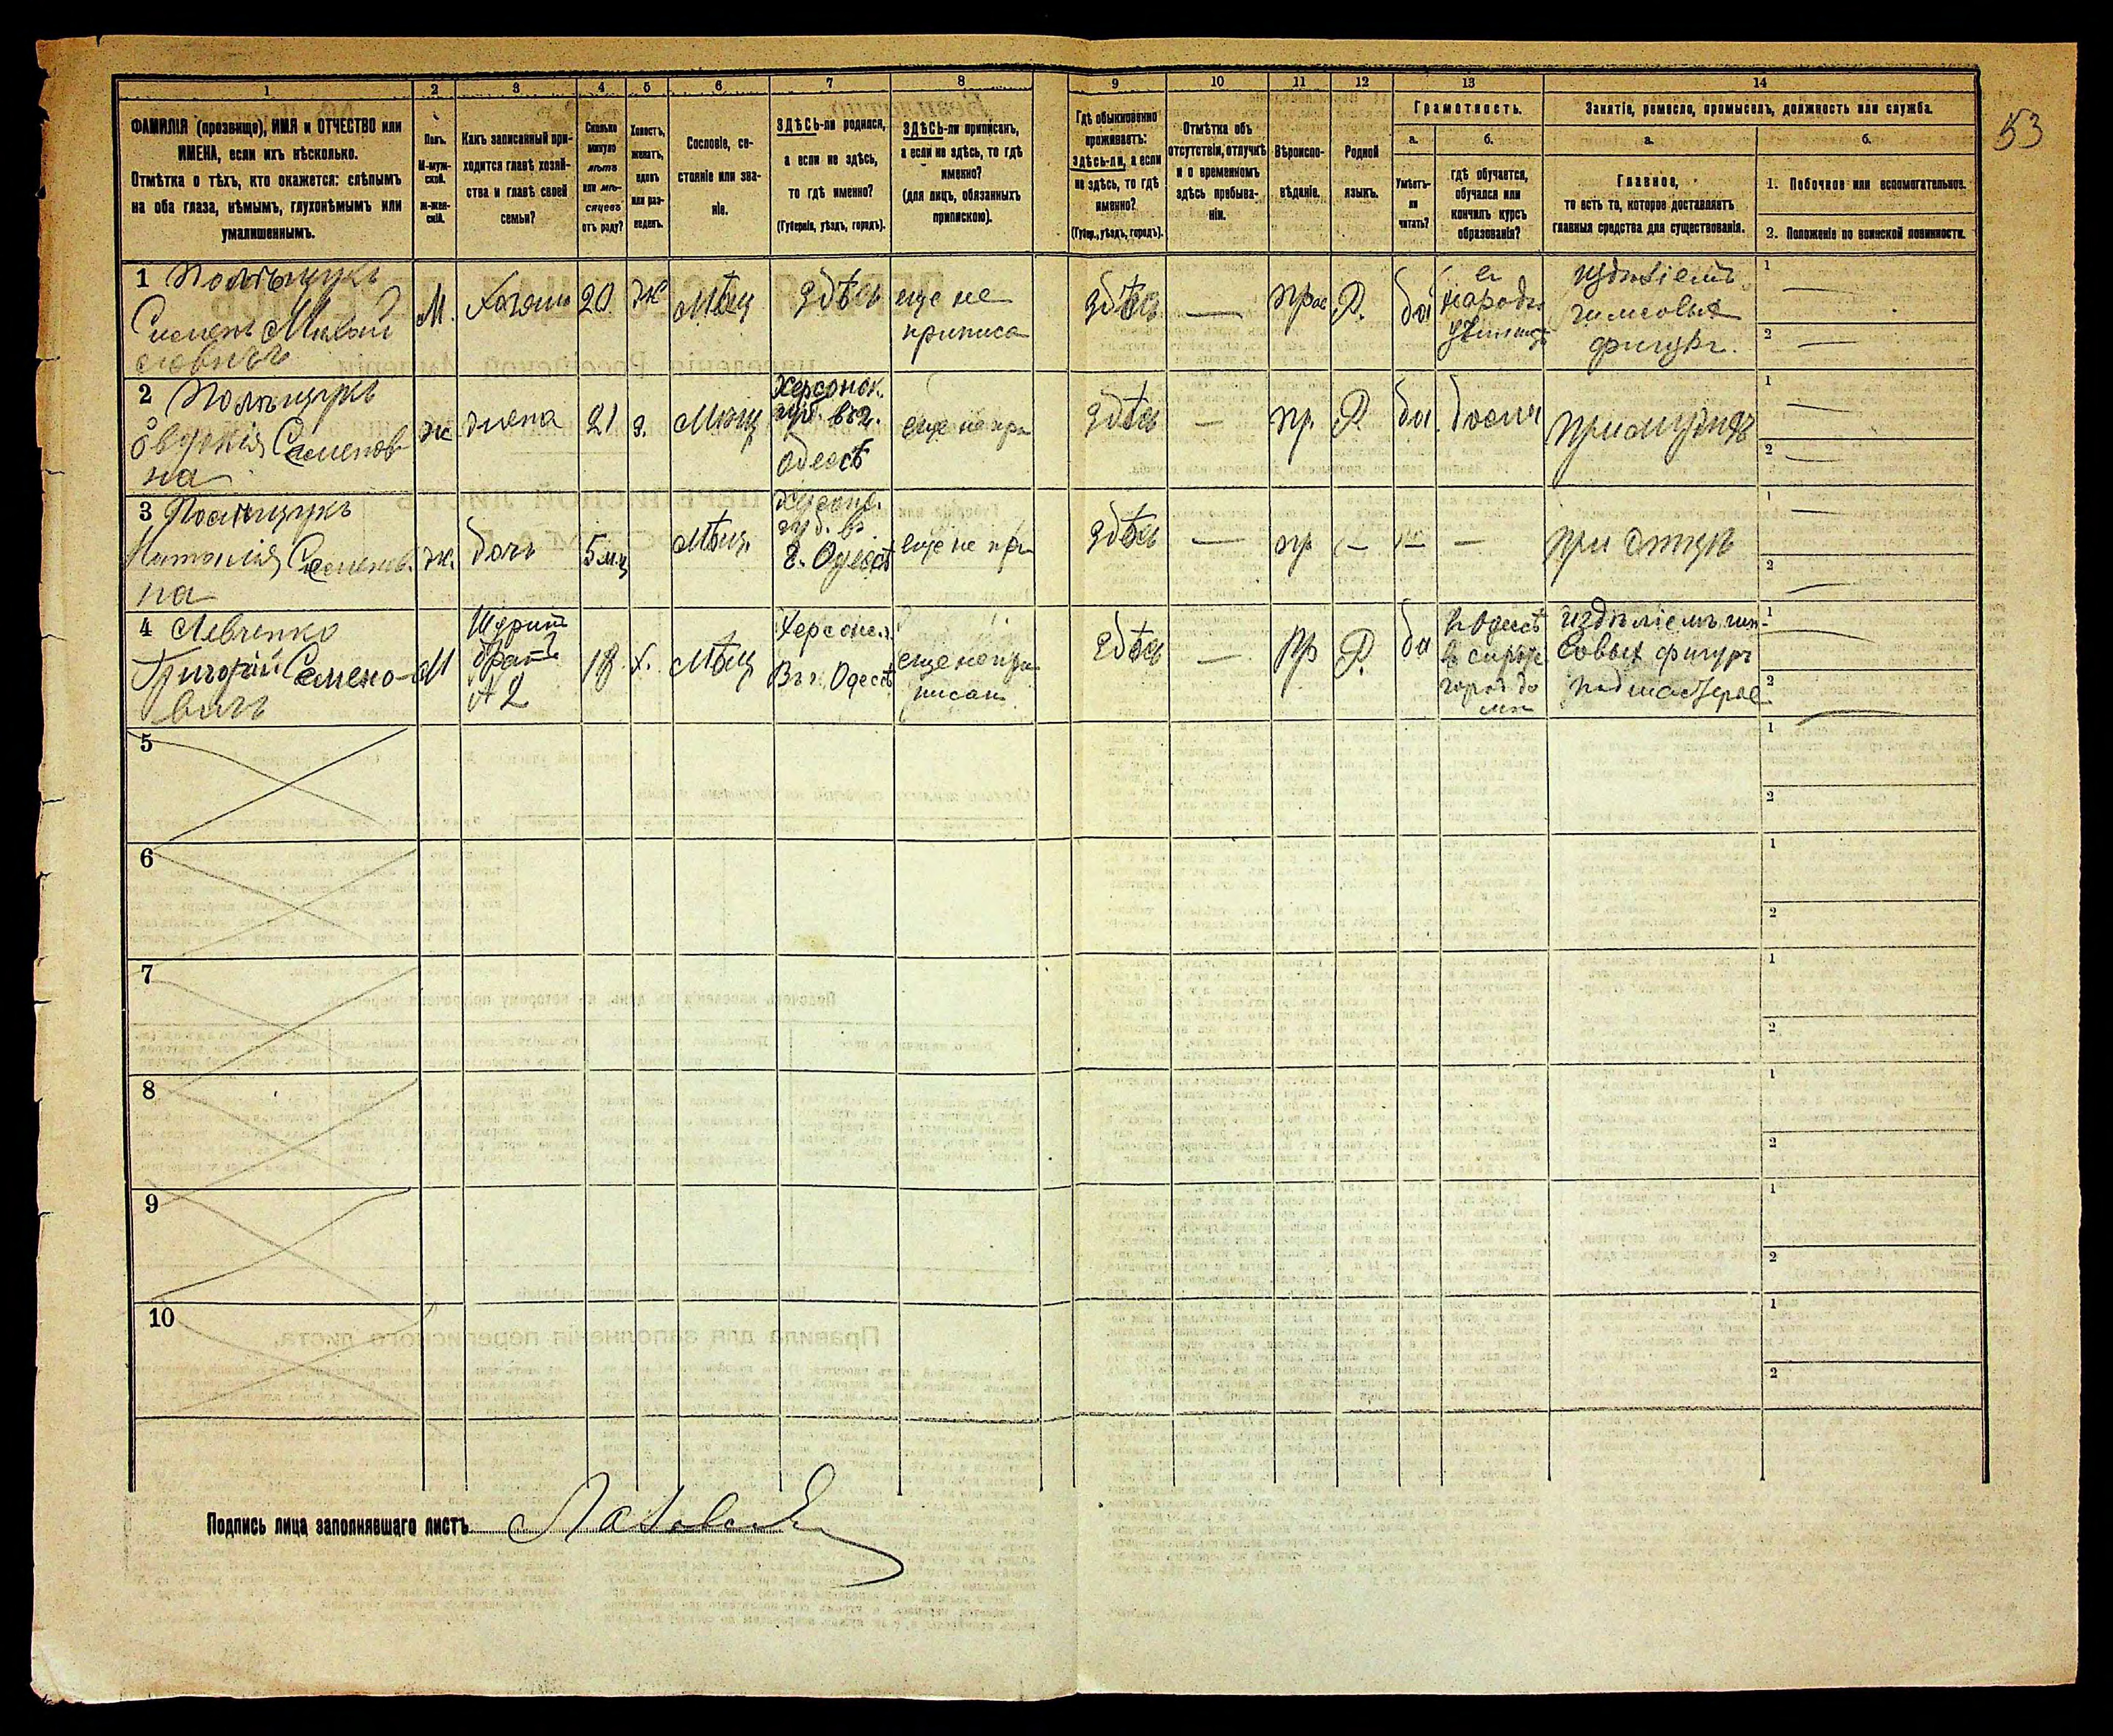 53
1 2 3 4 5 6 7 8 9 10 11 12 13 14
ФАМИЛІЯ (прозвище), ИМЯ и ОТЧЕСТВО или
ИМЕНА, если ихъ нѣсколько.
Отмѣтка о тѣхъ, кто окажется: слѣпымъ
на оба глаза, нѣмымъ, глухонѣмымъ или
умалишеннымъ.
Полъ.
М-муж-
ской.
Ж-жен-
скій.
Какъ записанный при-
ходится главѣ хозяй-
ства и главѣ своей
семьи?
Сколько
минуло
лѣтъ
или мѣ-
сяцевъ
отъ роду?
Холостъ,
женатъ,
вдовъ
или раз-
веденъ.
Сословіе, со-
стояніе или зва-
ніе.
ЗДѢСЬ-ли родился,
а если не здѣсь,
то гдѣ именно?
(Губернія, уѣздъ, городъ).
ЗДѢСЬ-ли приписанъ,
а если не здѣсь, то гдѣ
именно?
(для лицъ, обязанныхъ
припискою).
Гдѣ обыкновенно
проживаетъ:
здѣсь-ли, а если
не здѣсь, то гдѣ
именно?
(Губер., уѣздъ, городъ).
Отмѣтка объ
отсутствіи, отлучкѣ
и о временномъ
здѣсь пребыва-
ніи.
Вѣроиспо-
вѣданіе.
Родной
языкъ.
Грамотность.
а.
Умѣетъ-
ли
читать?
б.
гдѣ обучается,
обучался или
кончилъ курсъ
образованія?
Занятіе, ремесло, промыселъ, должность или служба.
а.
Главное,
то есть то, которое доставляетъ
главныя средства для существованія.
б.
1. Побочное или вспомогательное.
2. Положеніе по воинской повинности.
1 Полѣщукъ
Семенъ
М. Хозяинъ 20 Ж Мѣщ Здѣсь
еще не
приписа
Здѣсь — прав Р. да
в
народн.
училищѣ
издѣліемъ
гипсовых
фигуръ.
1 —
2 —
2 Полѣщукъ
Семенов
на
ж. жена 21 з. Мѣщ
Херсонск.
губ. въ г.
Одессѣ
еще не при
Здѣсь — пр. Р да дома
при мужѣ
1 —
2 —
3 Полѣщукъ
Наталія Семенов.
на
ж. дочь 5 м. Мѣщ.
Херсонс.
губ. въ
г. Одессѣ
еще не при
Здѣсь — пр — — —
при отцѣ
1
2 —
4 Левченко
Григорій Семено-
вичъ
М
Шуринъ
братъ
№ 2
18 х. Мѣщ
Херсонс.
Въ г. Одессѣ
еще не при
писан
Здѣсь — Пр Р. да
в Одессѣ
в сирот
город до
мѣ
издѣліемъ гип-
совых фигуръ
подмастерье
1 —
2 —
5 1 2
6 1 2
7 1 2
8 1 2
9 1 2
10 1 2
Подпись лица заполнявшаго листъ